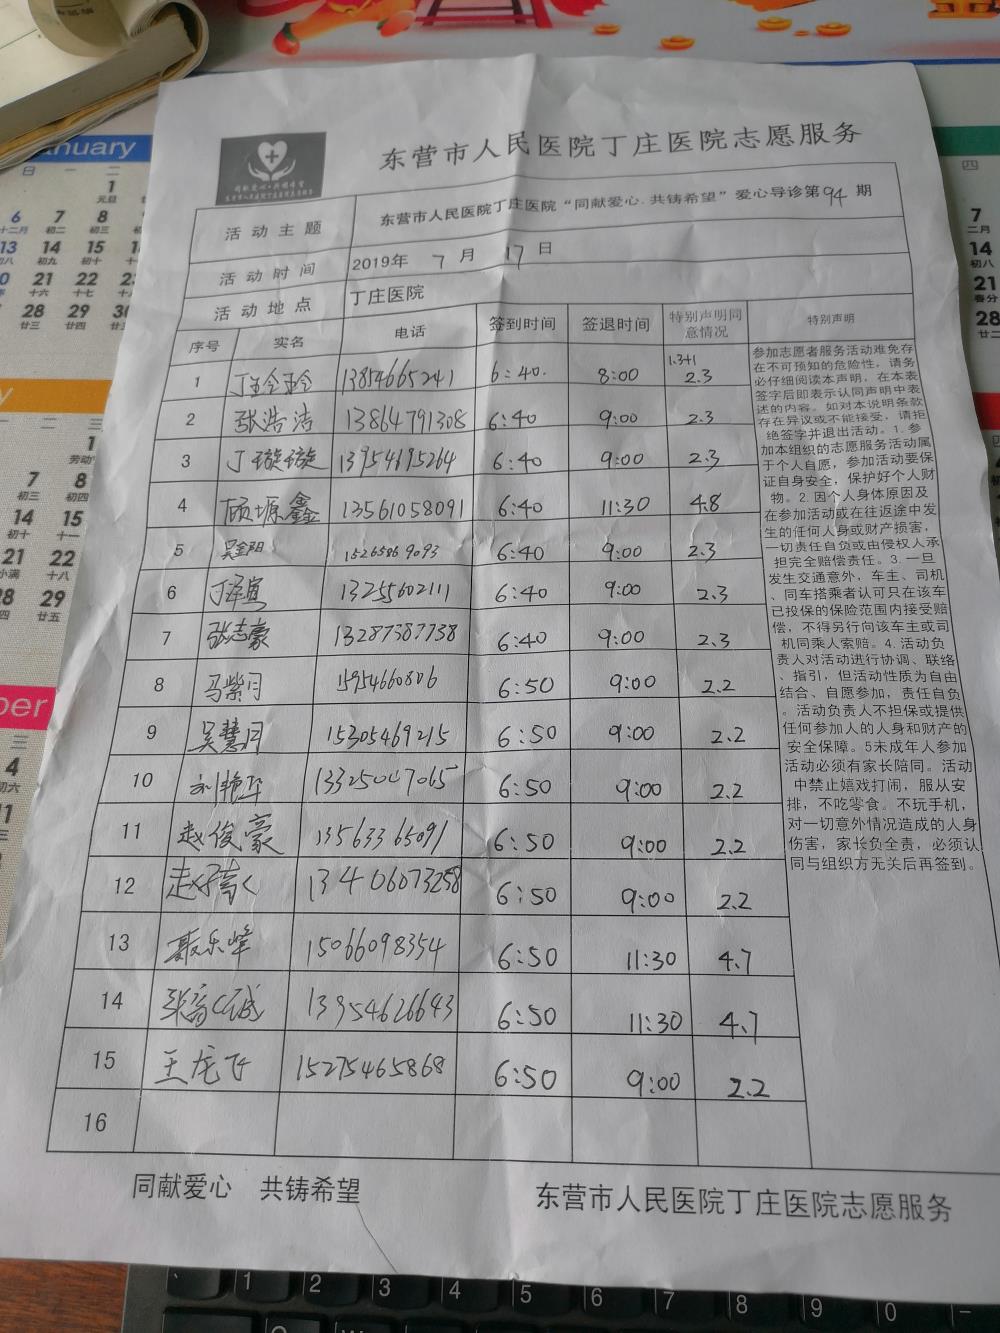 anuary
东营市人民医院丁庄医院志愿服务
活动主题 东营市人民医院丁庄医院“同献爱心.共铸希望”爱心导诊第94期
活动时间 2019年 7月 17日
活动地点 丁庄医院
序号 实名 电话 签到时间 签退时间 特别声明同意情况 特别声明
1 13854665241 6:40. 8:00 1.3+1 2.3
2 张浩洁 13864791308 6:40 9:00 2.3
3 丁璇璇 13954695264 6:40 9:00 2.3
4 顾塬鑫 13561058091 6:40 11:30 4.8
5 吴金阳 15265869093 6:40 9:00 2.3
6 丁泽寅 13255602111 6:40 9:00 2.3
7 张志豪 13287387738 6:40 9:00 2.3
8 马紫月 15954660806 6:50 9:00 2.2
9 吴慧月 15305469215 6:50 9:00 2.2
10 刘艳华 13325047065 6:50 9:00 2.2
11 赵俊豪 13563365091 6:50 9:00 2.2
12 13406073258 6:50 9:00 2.2
13 聂乐峰 15066098354 6:50 11:30 4.7
14 13954626643 6:50 11:30 4.7
15 王龙飞 15275465868 6:50 9:00 2.2
16
参加志愿者服务活动难免存
在不可预知的危险性，请务
必仔细阅读本声明，在本表
签字后即表示认同声明中表
述的内容。如对本说明条款
存在异议或不能接受，请拒
绝签字并退出活动。1.参
加本组织的志愿服务活动属
于个人自愿，参加活动要保
证自身安全，保护好个人财
物。2.因个人身体原因及
在参加活动或在往返途中发
生的任何人身或财产损害，
一切责任自负或由侵权人承
担完全赔偿责任。3.一旦
发生交通意外，车主、司机
、同车搭乘者认可只在该车
已投保的保险范围内接受赔
偿，不得另行向该车主或司
机同乘人索赔。4.活动负
责人对活动进行协调、联络
、指引，但活动性质为自由
结合、自愿参加，责任自负
。活动负责人不担保或提供
任何参加人的人身和财产的
安全保障。5未成年人参加
活动必须有家长陪同。活动
中禁止嬉戏打闹，服从安
排，不吃零食。不玩手机，
对一切意外情况造成的人身
伤害，家长负全责，必须认
同与组织方无关后再签到。
同献爱心 共铸希望
东营市人民医院丁庄医院志愿服务
1 2 3 4 5 6 7 8 9 0